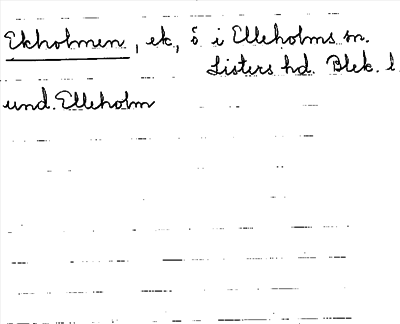 Ekholmen, ek, ö i Elleholms sn.
Listers hd. Blek. l
und. Elleholm